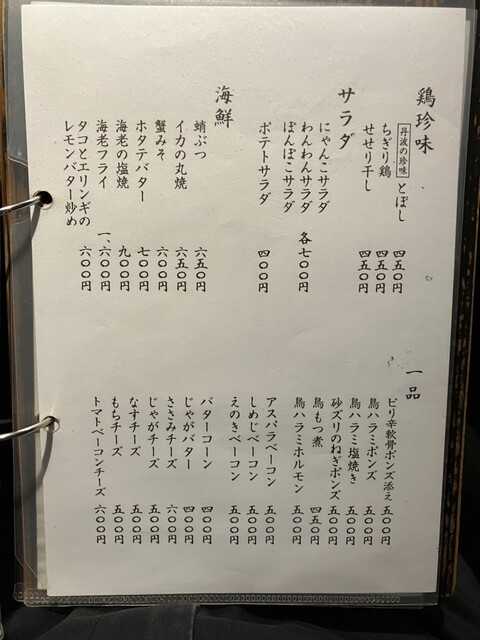 鶏珍味
丹波の珍味 とぼし 四五〇円
ちぎり鶏 四五〇円
せせり干し 四五〇円
サラダ
にゃんこサラダ
わんわんサラダ 各七〇〇円
ぽんぽこサラダ
ポテトサラダ 四〇〇円
海鮮
蛸ぶつ 六五〇円
イカの丸焼 六五〇円
蟹みそ 六〇〇円
ホタテバター 七〇〇円
海老の塩焼 九〇〇円
海老フライ 一、六〇〇円
タコとエリンギの
レモンバター炒め 六〇〇円
一品
ピリ辛軟骨ポンズ添え 五〇〇円
鳥ハラミポンズ 五〇〇円
鳥ハラミ塩焼き 五〇〇円
砂ズリのねぎポンズ 五〇〇円
鳥もつ煮 四五〇円
鳥ハラミホルモン 五〇〇円
アスパラベーコン 五〇〇円
しめじベーコン 五〇〇円
えのきベーコン 五〇〇円
バターコーン 四〇〇円
じゃがバター 四〇〇円
ささみチーズ 六〇〇円
じゃがチーズ 五〇〇円
なすチーズ 五〇〇円
もちチーズ 五〇〇円
トマトベーコンチーズ 六〇〇円